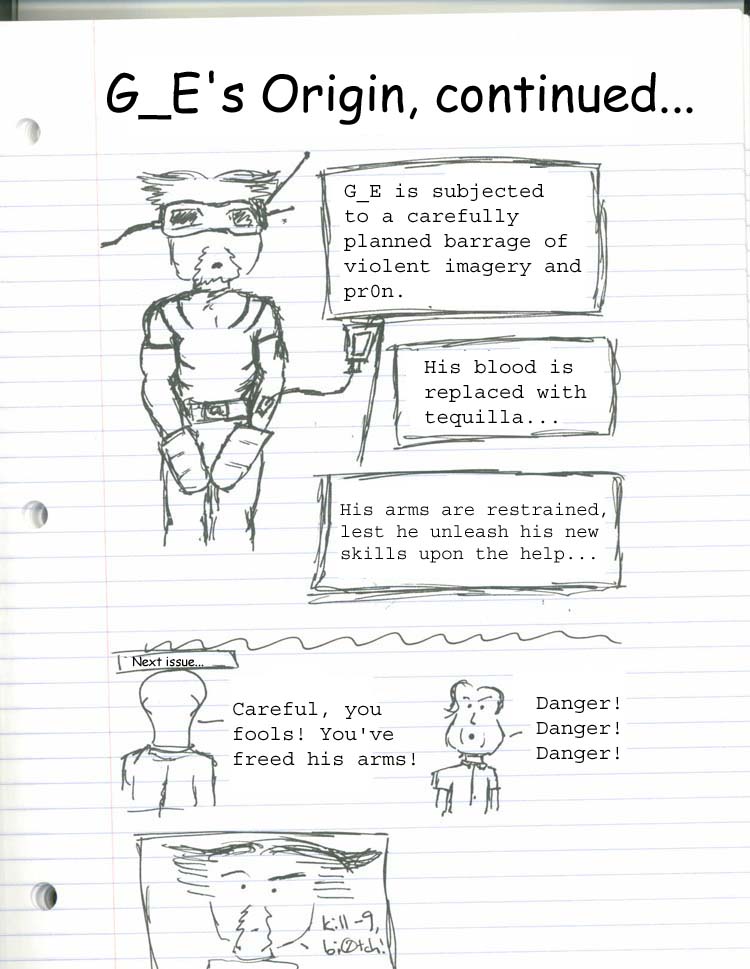 G_E's Origin, continued...
G_E is subjected
to a carefully
planned barrage of
violent imagery and
pr0n.
His blood is
replaced with
tequilla...
His arms are restrained,
lest he unleash his new
skills upon the help...
Next issue...
Careful, you
fools! You've
freed his arms!
Danger!
Danger!
Danger!
kill -9,
bi@tch!